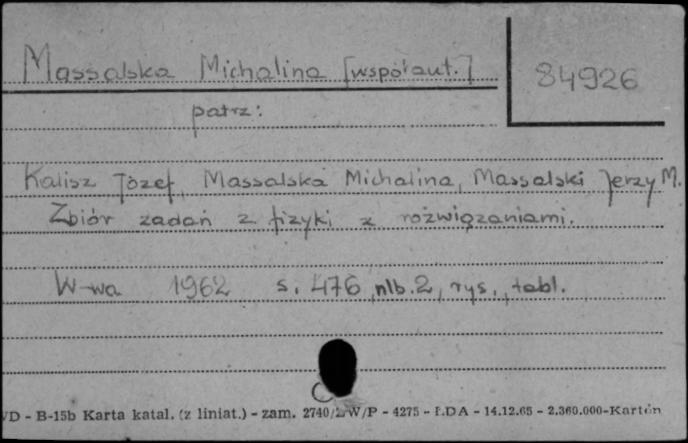 Massalska Michalina [współaut.]
84926
patrz:
Kalisz Józef, Massalska Michalina, Massalski Jerzy M.
Zbiór zadań z fizyki z rozwiązaniami.
W-wa 1962 s. 476, nlb. 2, rys., tabl.
VD - B-15b Karta katal. (z liniat.) - zam. 2740/ W/P - 4275 - LDA - 14.12.65 - 2.360.000-Karton